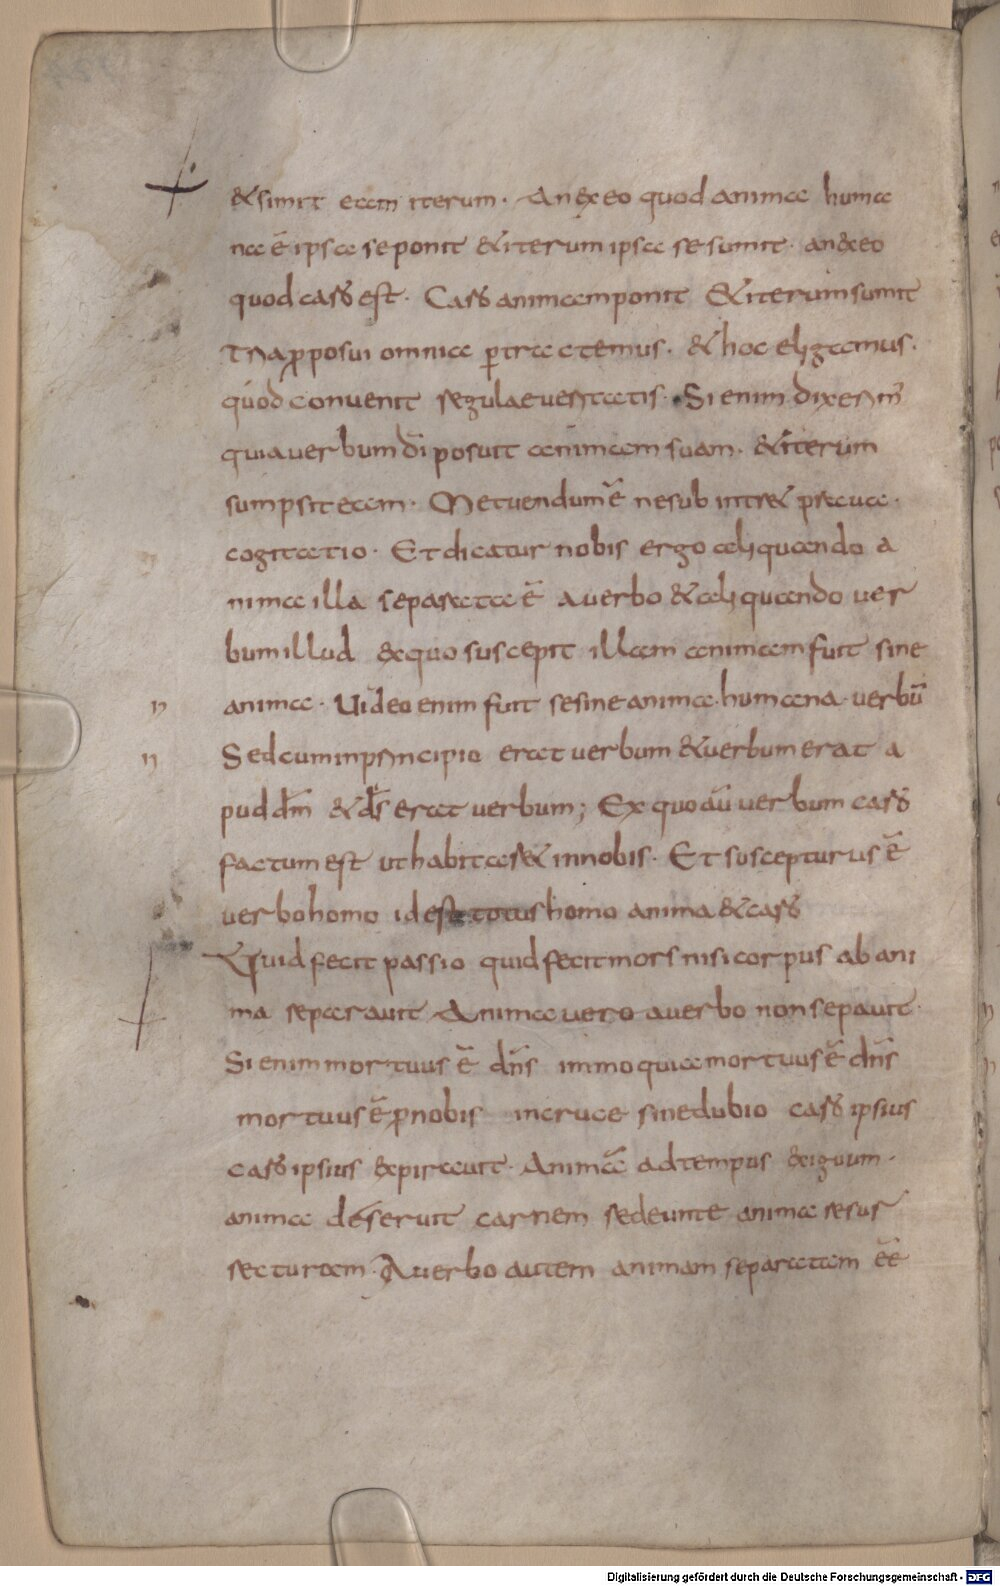 &simit eam iterum. An &xeo quod anima huma
na ē ipsa seponit &iterum ipsa sesumit. an &xeo
quod caro est. Caro animam ponit &iterum sumit
Tria p̄posui omnia ptractemus. & hoc eligamus.
quod conuenit regulae ueritatis. Si enim dixerim̄
quia uerbum dī posuit animam suam. &iterum
sumpsit eam. Metuendum ē ne sub intr& praua.
cogitatio. Et dicatur nobis ergo aliquando a
nima illa separata ē auerbo &aliquando uer
bum illud &xquo suscepit illam animam fuit sine
anima. Uideo enim fuisse sine anima. humana. uerbū
Sed cum inprincipio erat uerbum &uerbum erat a
pud dm̄ &ds̄ erat uerbum; Ex quo aū uerbum caro
factum est ut habitar& innobis. Et suscepturus ē
uerbo homo id est totus homo anima &caro
Quid fecit passio quid fecit mors nisi corpus ab ani
ma separauit Anima uero auerbo non sepauit.
Si enim mortuus ē dn̄s immo quia mortuus ē dn̄s
mortuus ē p̄nobis incruce sine dubio caro ipsius
caro ipsius &xpirauit. Animā ad tempus &xiguum.
anima deseruit carnem sedeunte anima resur
recturam. Auerbo autem animam separatam ēē
Digitalisierung gefördert durch die Deutsche Forschungsgemeinschaft - DFG